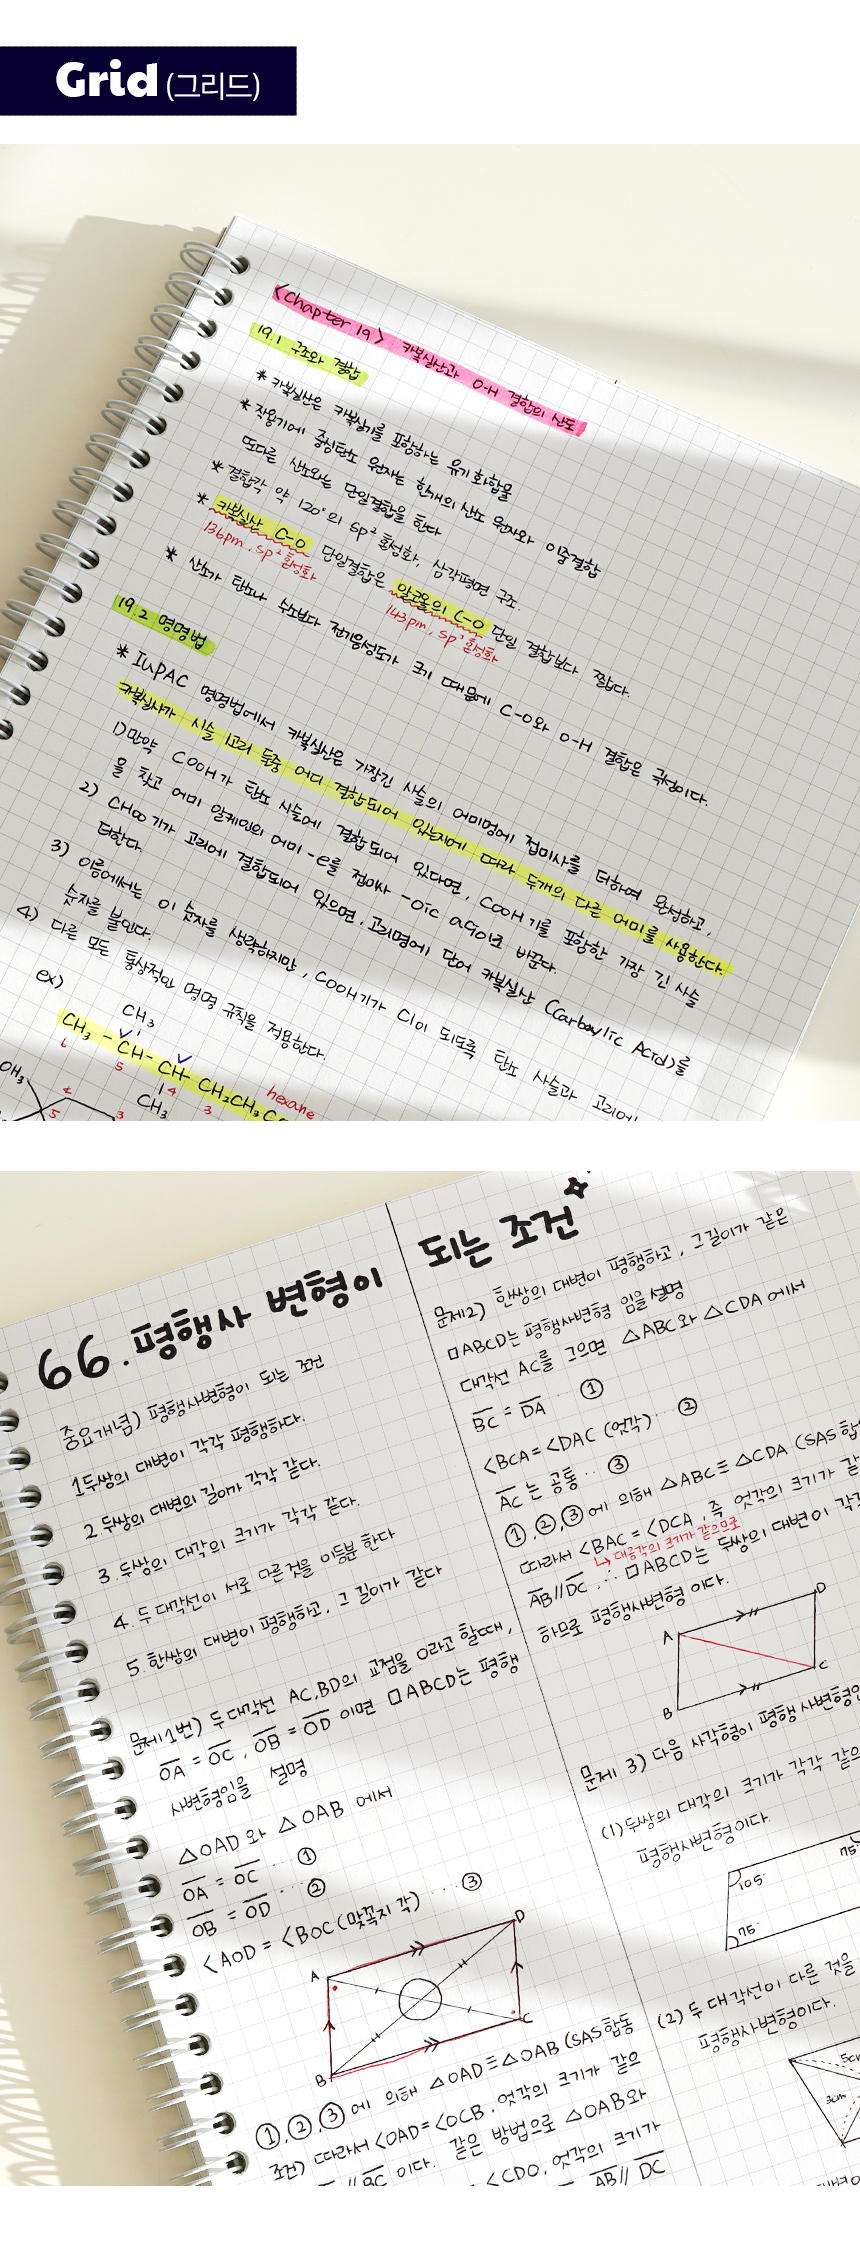 Grid (그리드)
<Chapter 19> 카복실산과 O-H 결합의 산도
19.1 구조와 결합
* 카복실산은 카복실기를 포함하는 유기 화합물
* 작용기에 중심탄소 원자는 한개의 산소 원자와 이중결합
또다른 산소와는 단일결합을 한다
* 결합각 약 120°의 sp² 혼성화, 삼각평면 구조.
* 카복실산 C-O 단일결합은 알코올의 C-O 단일 결합보다 짧다.
136pm, sp² 혼성화
143pm, sp³ 혼성화
* 산소가 탄소나 수소보다 전기음성도가 크기 때문에 C-O와 O-H 결합은 극성이다.
19.2 명명법
* IuPAC 명명법에서 카복실산은 가장긴 사슬의 어미명에 접미사를 더하여 완성하고,
카복실사가 시슬 고리 둘중 어디 결합되어 있는지에 따라 두개의 다른 어미를 사용한다.
1) 만약 COOH가 탄소 시슬에 결합되어 있다면, COOH기를 포함한 가장 긴 사슬
을 찾고 어미 알케인의 어미 -e를 접미싸 -oic acid로 바꾼다.
2) CHOO기가 고리에 결합되어 있으면, 고리명에 단어 카복실산 (Carboxylic Acid)를
더한다.
3) 이름에서는 이 숫자를 생략하지만, COOH기가 C1이 되도록 탄소 사슬과 고리에
숫자를 붙인다.
4) 다른 모든 통상적인 명명 규칙을 적용한다.
ex)
CH₃
CH₃ - CH - CH - CH₂CH₃
6 5 4 3
CH₃
hexane
OH₃
4
5 3
66. 평행사 변형이 되는 조건
중요개념) 평행사변형이 되는 조건
1 두쌍의 대변이 각각 평행하다.
2. 두쌍의 대변의 길이가 각각 같다.
3. 두쌍의 대각의 크기가 각각 같다.
4. 두 대각선이 서로 다른것을 이등분 한다
5. 한쌍의 대변이 평행하고, 그 길이가 같다
문제1번) 두 대각선 AC, BD의 교점을 O라고 할때,
OA = OC, OB = OD 이면 □ABCD는 평행
사변형임을 설명
△OAD 와 △OAB 에서
OA = OC ... ①
OB = OD ... ②
<AOD = <BOC (맞꼭지 각) ... ③
A
D
B
C
①, ②, ③에 의해 △OAD≡△OAB (SAS합동
조건) 따라서 <OAD=<OCB, 엇각의 크기가 같으
// BC 이다. 같은 방법으로 △OAB와
<CDO, 엇각의 크기가
AB // DC
문제2) 한쌍의 대변이 평행하고, 그길이가 같은
□ABCD는 평행사변형 임을 설명
대각선 AC를 그으면 △ABC와 △CDA 에서
BC = DA ①
<BCA = <DAC (엇각) ... ②
AC 는 공통 ... ③
①, ②, ③에 의해 △ABC≡△CDA (SAS 합
따라서 <BAC = <DCA, 즉 엇각의 크기가 같
↳ 대응각의 크기가 같으므로
AB // DC ∴ □ABCD는 두쌍의 대변이 각각
하므로 평행사변형 이다.
A
D
B
C
문제 3) 다음 사각형이 평행 사변형인
(1) 두쌍의 대각의 크기가 각각 같으
평행사변형이다.
105°
75°
75°
(2) 두 대각선이 다른 것을
평행사변형이다.
5cm
3cm